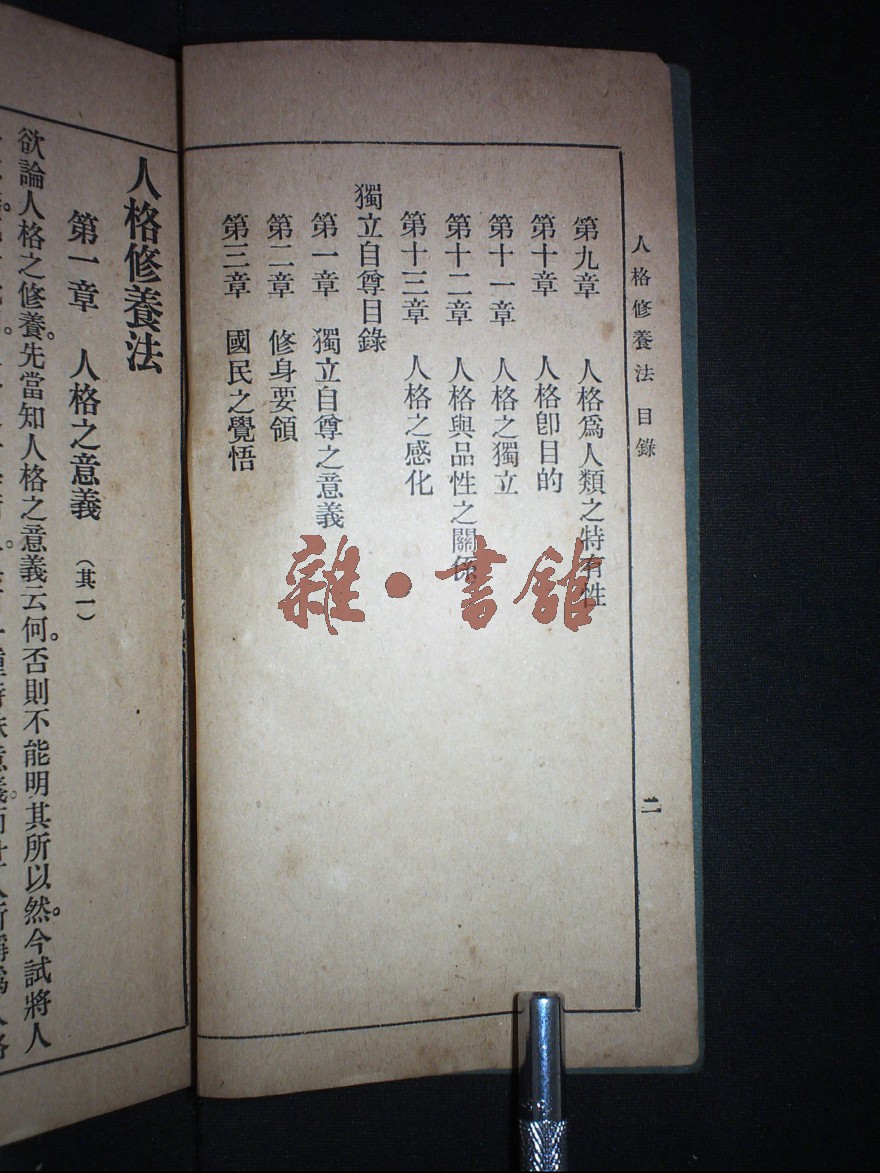 人格修養法 目錄
二
第九章 人格爲人類之特有性
第十章 人格卽目的
第十一章 人格之獨立
第十二章 人格與品性之關係
第十三章 人格之感化
獨立自尊目錄
第一章 獨立自尊之意義
第二章 修身要領
第三章 國民之覺悟
雜·書館
人格修養法
第一章 人格之意義 (其一)
欲論人格之修養。先當知人格之意義云何。否則不能明其所以然。今試將人